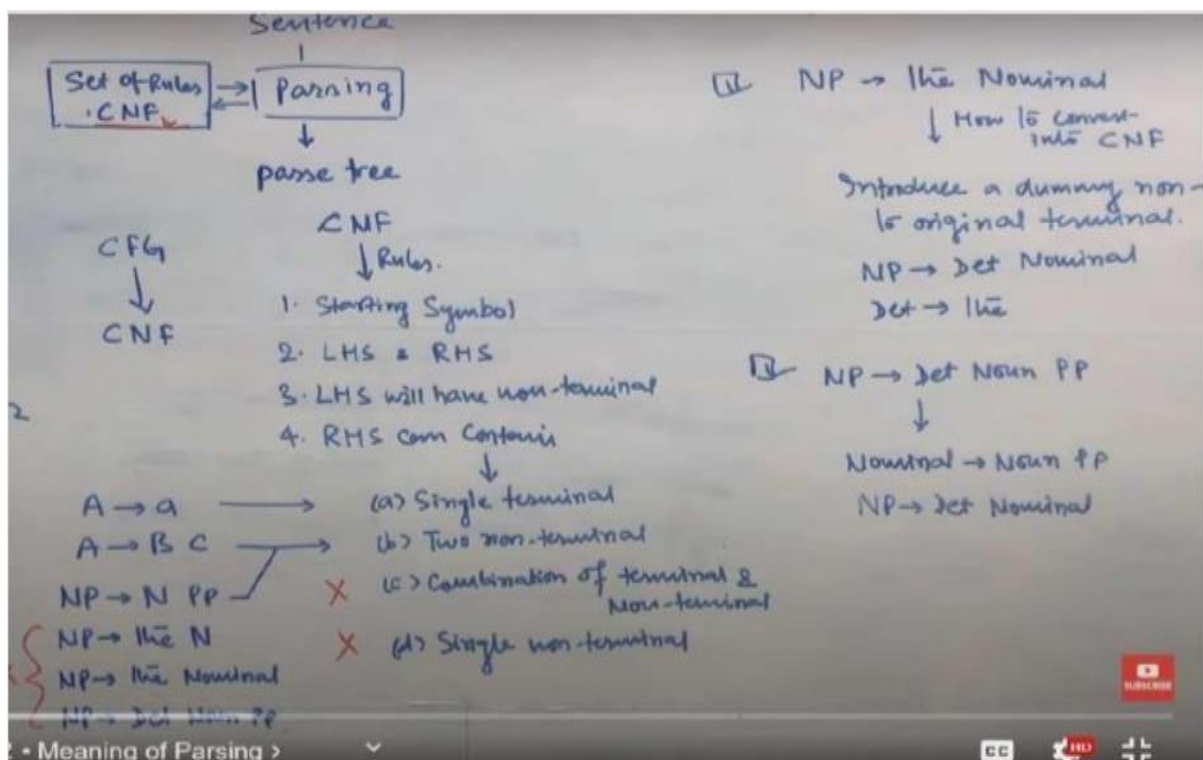 Sentence
Set of Rules
.CNF
Parsing
parse tree
CFG
CNF
CNF
Rules.
1. Starting Symbol
2. LHS & RHS
3. LHS will have non-terminal
4. RHS can Contain
A → a
(a) Single terminal
A → B C
(b) Two non-terminal
NP → N PP
X (c) Combination of terminal &
Non-terminal
NP → the N
X (d) Single non-terminal
NP → the Nominal
NP → Det Noun PP
2
NP → the Nominal
How to convert
into CNF
Introduce a dummy non-
to original terminal.
NP → Det Nominal
Det → the
NP → Det Noun PP
Nominal → Noun PP
NP → Det Nominal
SUBSCRIBE
2 • Meaning of Parsing >
CC
HD